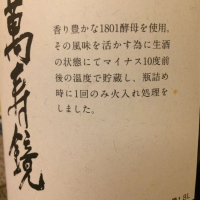 萬寿鏡
香り豊かな1801酵母を使用。
その風味を活かす為に生酒
の状態にてマイナス10度前
後の温度で貯蔵し、瓶詰め
時に1回のみ火入れ処理を
しました。
1.8L